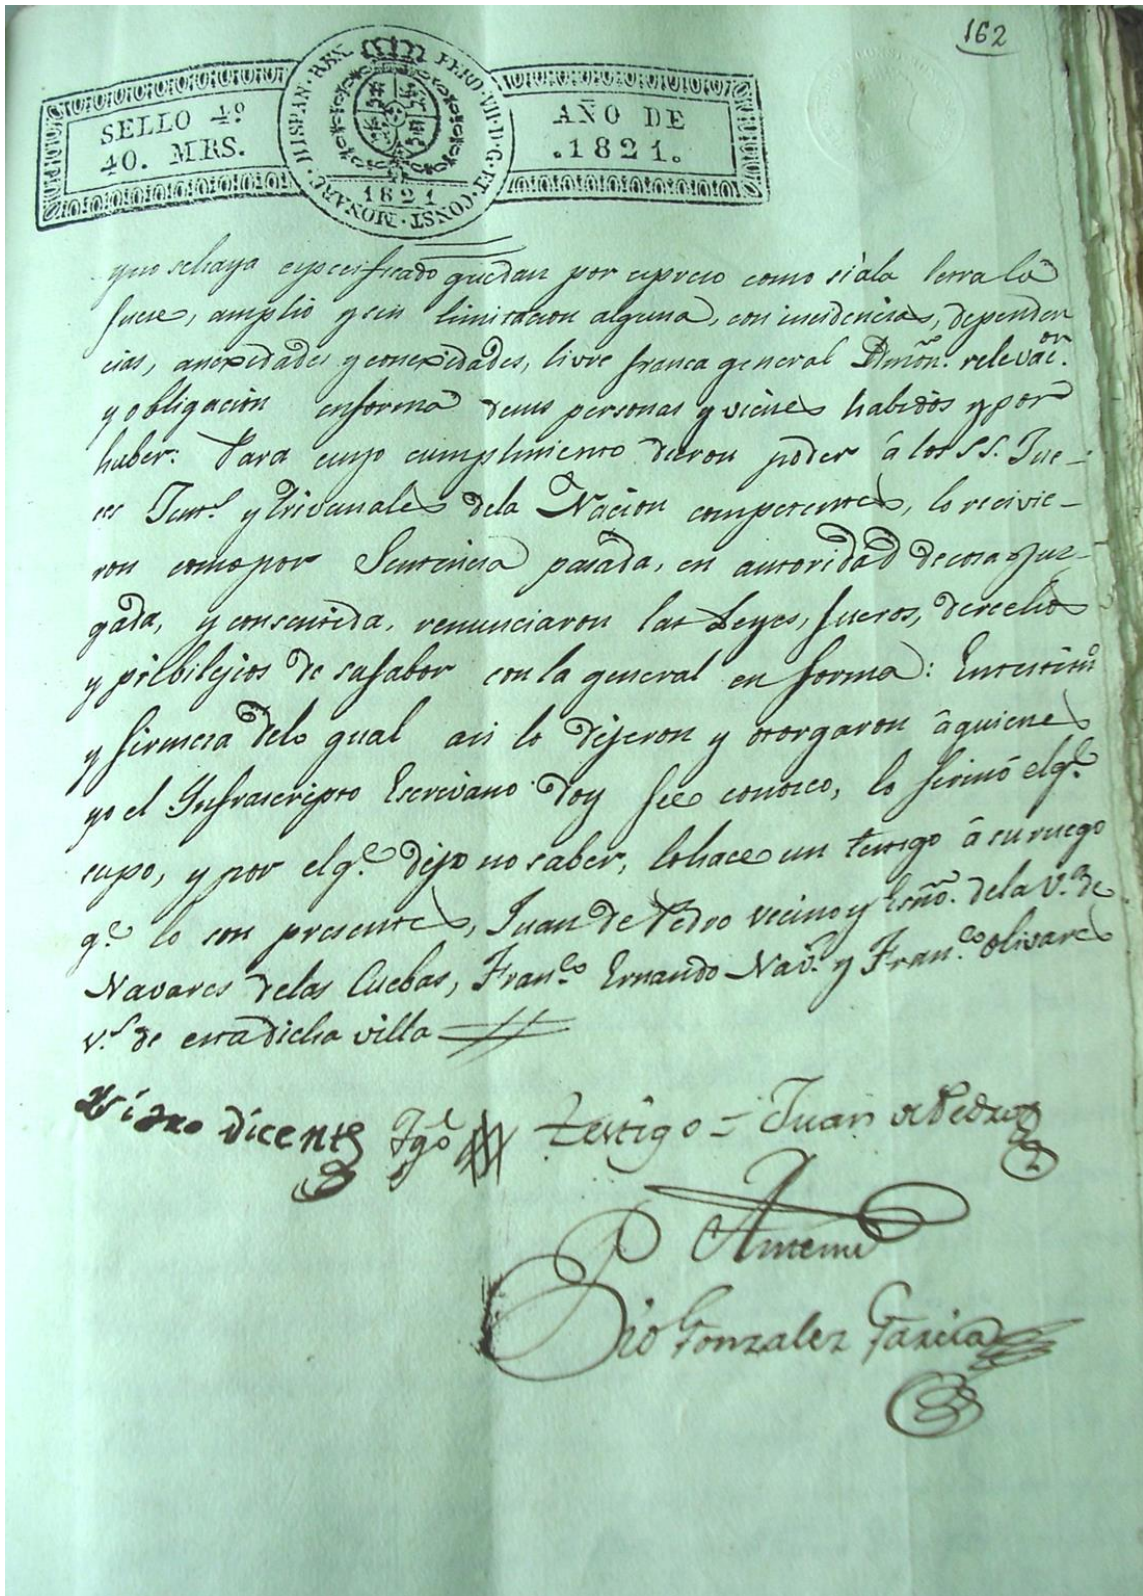 162
SELLO 4º
40. MRS.
HISPAN. REX. FERD. VII. D. G. ET. CONST. MONARC.
1821
AÑO DE
.1821.
y no sehaya expecificado quedan por expreso como siala letra lo
fuere, amplio y sin limitacion alguna, con incidencias, dependen
cias, anexedades y conexedades, livre franca general Dmón. relevaon.
y obligacion enforma desus personas y viénes habidos y por
haber: Para cuyo cumplimiento dieron poder á los SS. Jue-
ces Just.s y Trivunales dela Nacion competentes, lo recivie-
ron como por Sentencia pasada, en autoridad decosa Juz-
gada, y consentida, renunciaron las Leyes, fueros, derechos
y pribilejios de sufabor con la general en forma: Entestimo
y firmeza delo qual asi lo dijeron y otorgaron áquienes
yo el Ynfrascripto Escrivano doy fee conozco, lo firmó elq.e
supo, y por elq.e dijo no saber, lohace un testigo á su ruego
q.e lo son presentes, Juan de Pedro vecino y Esño. dela V.a de
Navares delas Cuebas, Fran.co Ernando Nav.o y Fran.co Olivares
v.s de estadicha villa
Dicente Testigo = Juan dePedro
Antemi
Pio Gonzalez Garcia